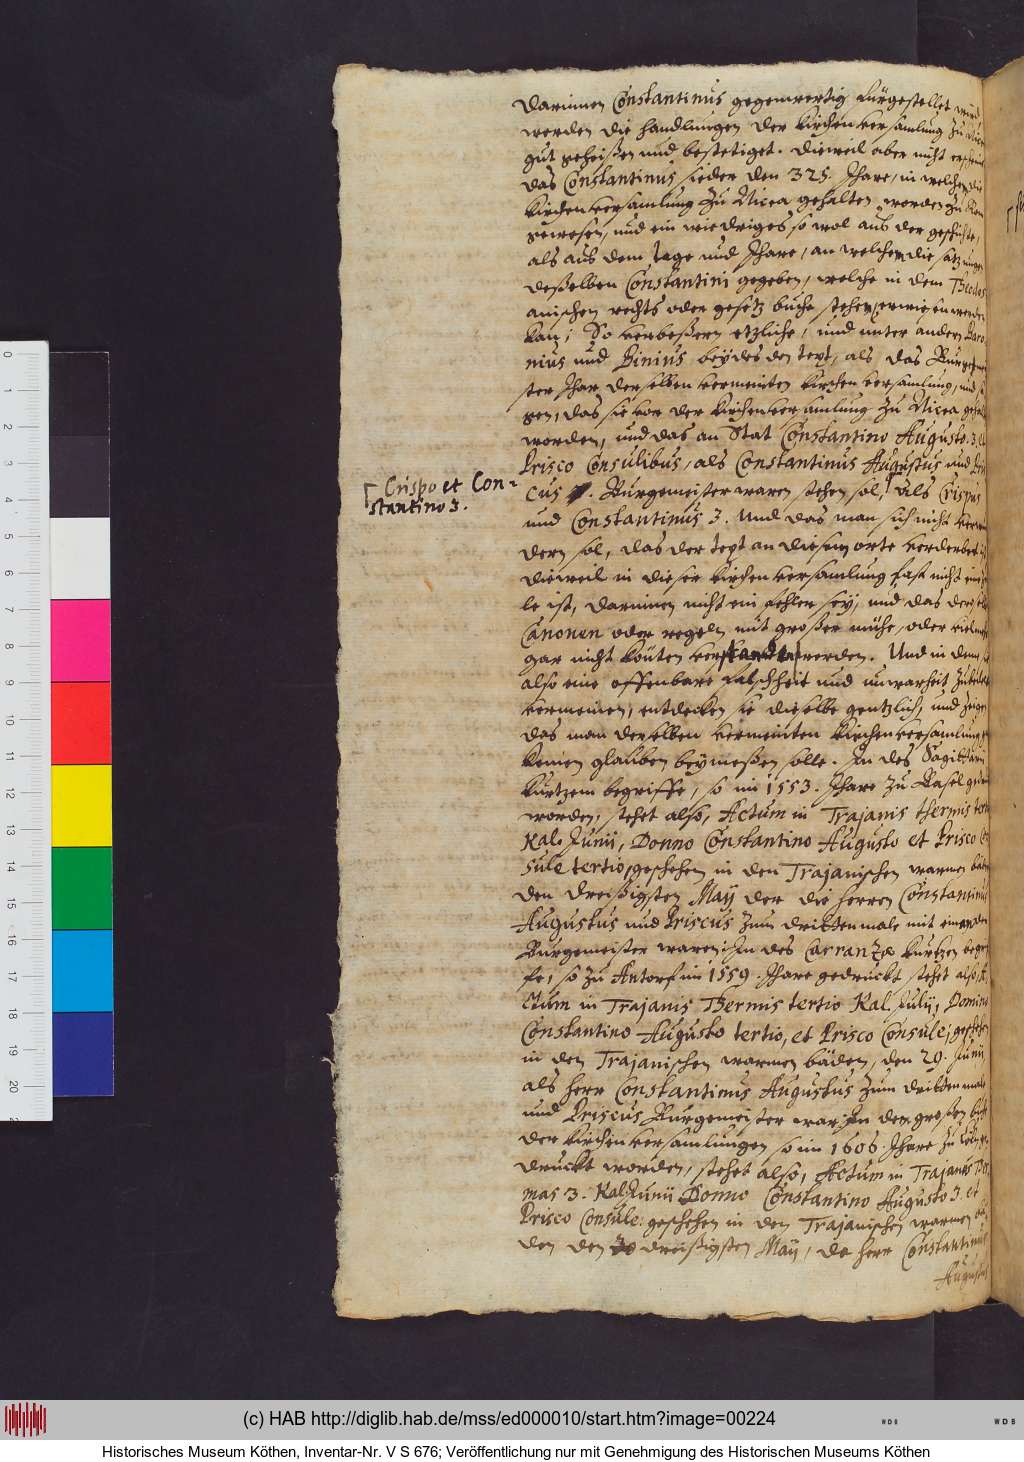 darinnen Constantinus gegenwertig fürgestellet wird,
werden die handlungen der kirchenversamlung zu
gut geheißen und bestetiget. dieweil aber nicht
das Constantinus sieder den 325. Jhare, in welchem die
kirchenversamlung zu Nicea gehalten worden zu Rom
gewesen, und ein wiedriges so wol aus der geschichte,
als aus dem tage und Jhare, an welchem die satzungen
deßelben Constantini gegeben, welche in dem
anischen rechts oder gesetz buche stehen, erwiesen werden
kan; So verbeßern etzliche, und unter andern Baro
nius und Binius beydes den text, als das
ster Jhar derselben vermeinten kirchenversamlung, und
gen, das sie vor der kirchenversamlung zu Nicea
worden, und das an Stat Constantino Augusto. 3. et
Prisco Consulibus, als Constantinus Augustus und Pris
cus . Burgemeister waren stehen sol, als Crispus
Crispo et Con-
stantino 3.
und Constantinus 3. Und das man sich nicht
dern sol, das der text an diesem orte verderbet
dieweil in dieser kirchenversamlung fast nicht eine
le ist, darinnen nicht ein fehler sey, und das
Canonen oder regeln mit großer mühe, oder
gar nicht köńten verstanden werden. Und in dem
also eine offenbare falschheit und unwarheit
vermeinen, entdecken sie dieselbe gentzlich, und zeigen
das man derselben vermeinten kirchenversamlung
keinen glauben beymeßen solle. In des Sagittarii
kurtzem begriffe, so im 1553. Jhare zu Basel
worden, stehet also, Actum in Trajanis thermis
Kal. Junii, Donno Constantino Augusto et Prisco
sule tertio, geschehen in den Trajanischen warmen
den dreißigsten Maij der die herren Constantinus
Augustus und Priscus zum dritten male mit einander
Burgemeister waren; In des Carranzæ kurtzen
fe, so zu Antorf im 1559. Jhare gedruckt stehet also, A
ctum in Trajanis Thermis tertio Kal. Julij, Domino
Constantino Augusto tertio, et Prisco Consule; geschehen
in den Trajanischen warmen bäden, den 29. Junij
als herr Constantinus Augustus zum dritten male
und Priscus Burgemeister war; In dem großen buche
der kirchenversamlungen so im 1606. Jhare zu
druckt worden, stehet also, Actum in Trajanis Ther
mas 3. Kal. Junii Donno Constantino Augusto 3. et
Prisco Consule: geschehen in den Trajanischen warmen
den den dreißigsten Maij, da herr Constantinus
Augustus
0 1 2 3 4 5 6 7 8 9 10 11 12 13 14 15 16 17 18 19 20
(c) HAB http://diglib.hab.de/mss/ed000010/start.htm?image=00224
WDB
WDB
Historisches Museum Köthen, Inventar-Nr. V S 676; Veröffentlichung nur mit Genehmigung des Historischen Museums Köthen